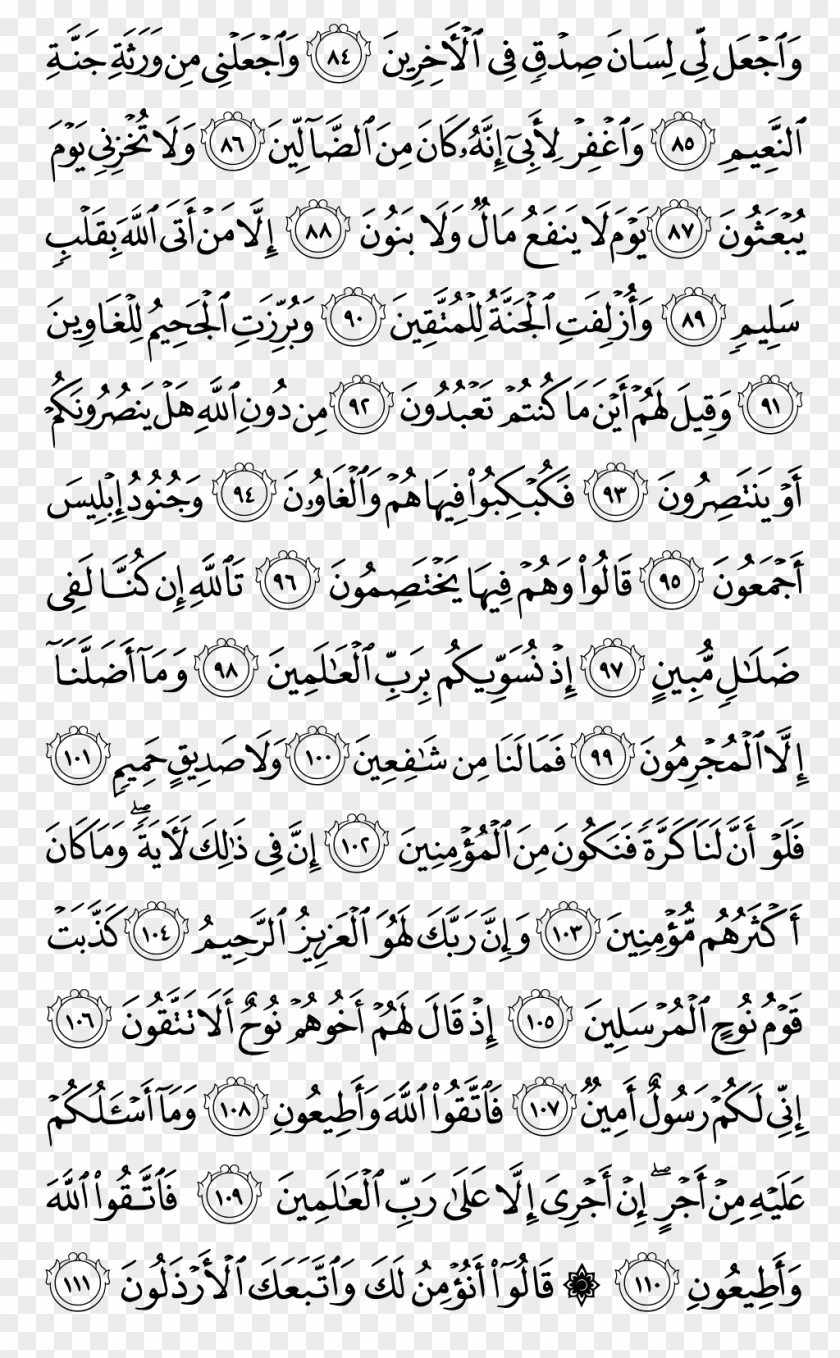 وَٱجۡعَل لِّي لِسَانَ صِدۡقٖ فِي ٱلۡأٓخِرِينَ ٨٤ وَٱجۡعَلۡنِي مِن وَرَثَةِ جَنَّةِ
ٱلنَّعِيمِ ٨٥ وَٱغۡفِرۡ لِأَبِيٓ إِنَّهُۥ كَانَ مِنَ ٱلضَّآلِّينَ ٨٦ وَلَا تُخۡزِنِي يَوۡمَ
يُبۡعَثُونَ ٨٧ يَوۡمَ لَا يَنفَعُ مَالٞ وَلَا بَنُونَ ٨٨ إِلَّا مَنۡ أَتَى ٱللَّهَ بِقَلۡبٖ
سَلِيمٖ ٨٩ وَأُزۡلِفَتِ ٱلۡجَنَّةُ لِلۡمُتَّقِينَ ٩٠ وَبُرِّزَتِ ٱلۡجَحِيمُ لِلۡغَاوِينَ
٩١ وَقِيلَ لَهُمۡ أَيۡنَ مَا كُنتُمۡ تَعۡبُدُونَ ٩٢ مِن دُونِ ٱللَّهِ هَلۡ يَنصُرُونَكُمۡ
أَوۡ يَنتَصِرُونَ ٩٣ فَكُبۡكِبُواْ فِيهَا هُمۡ وَٱلۡغَاوُۥنَ ٩٤ وَجُنُودُ إِبۡلِيسَ
أَجۡمَعُونَ ٩٥ قَالُواْ وَهُمۡ فِيهَا يَخۡتَصِمُونَ ٩٦ تَٱللَّهِ إِن كُنَّا لَفِي
ضَلَٰلٖ مُّبِينٍ ٩٧ إِذۡ نُسَوِّيكُم بِرَبِّ ٱلۡعَٰلَمِينَ ٩٨ وَمَآ أَضَلَّنَآ
إِلَّا ٱلۡمُجۡرِمُونَ ٩٩ فَمَا لَنَا مِن شَٰفِعِينَ ١٠٠ وَلَا صَدِيقٍ حَمِيمٖ ١٠١
فَلَوۡ أَنَّ لَنَا كَرَّةٗ فَنَكُونَ مِنَ ٱلۡمُؤۡمِنِينَ ١٠٢ إِنَّ فِي ذَٰلِكَ لَأٓيَةٗۖ وَمَا كَانَ
أَكۡثَرُهُم مُّؤۡمِنِينَ ١٠٣ وَإِنَّ رَبَّكَ لَهُوَ ٱلۡعَزِيزُ ٱلرَّحِيمُ ١٠٤ كَذَّبَتۡ
قَوۡمُ نُوحٍ ٱلۡمُرۡسَلِينَ ١٠٥ إِذۡ قَالَ لَهُمۡ أَخُوهُمۡ نُوحٌ أَلَا تَتَّقُونَ ١٠٦
إِنِّي لَكُمۡ رَسُولٌ أَمِينٞ ١٠٧ فَٱتَّقُواْ ٱللَّهَ وَأَطِيعُونِ ١٠٨ وَمَآ أَسۡـَٔلُكُمۡ
عَلَيۡهِ مِنۡ أَجۡرٍۖ إِنۡ أَجۡرِيَ إِلَّا عَلَىٰ رَبِّ ٱلۡعَٰلَمِينَ ١٠٩ فَٱتَّقُواْ ٱللَّهَ
وَأَطِيعُونِ ١١٠ ۞ قَالُوٓاْ أَنُؤۡمِنُ لَكَ وَٱتَّبَعَكَ ٱلۡأَرۡذَلُونَ ١١١